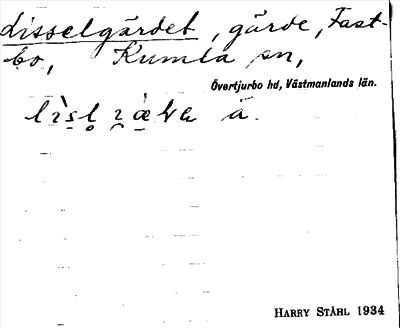 Lisselgärdet, gärde, Fast-
bo, Kumla sn,
Övertjurbo hd, Västmanlands län.
å.
HARRY STÅHL 1934